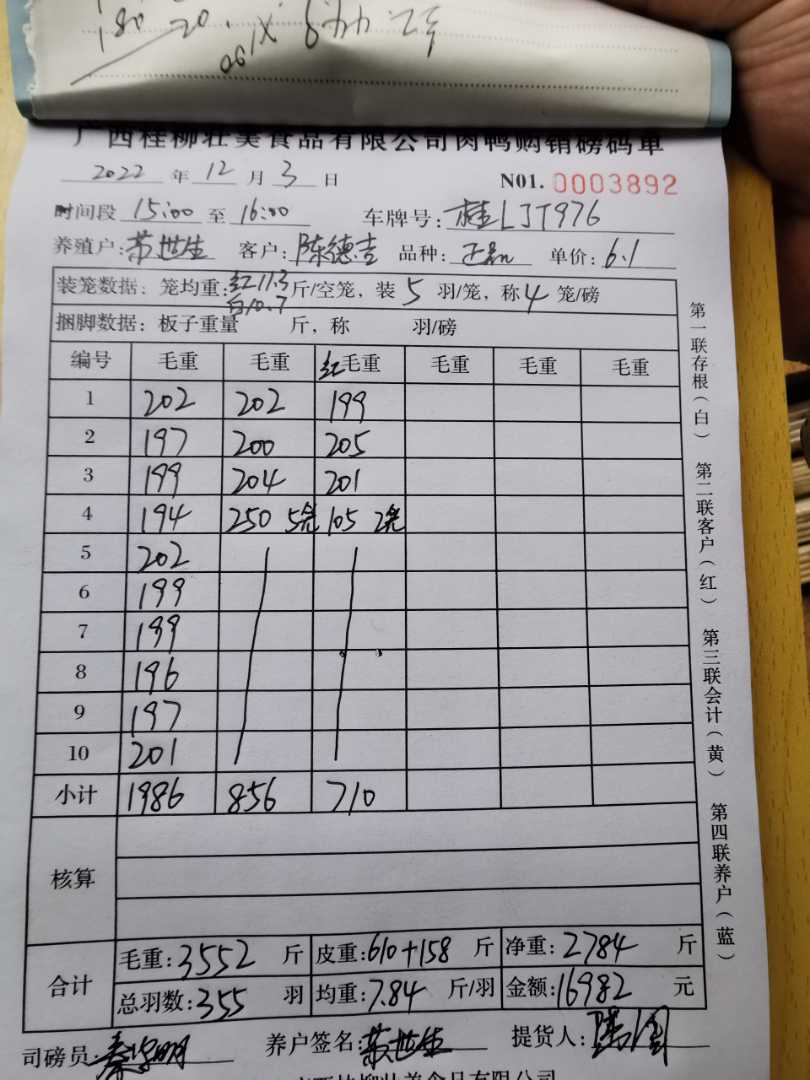 180 20
广西桂柳壮美食品有限公司肉鸭购销磅码单
2022 年 12 月 3 日 N01. 0003892
时间段 15:00 至 16:00 车牌号: 桂LJT976
养殖户: 苏世生 客户: 陈德吉 品种: 单价: 6.1
装笼数据: 笼均重: 红11.3 白10.7 斤/空笼, 装 5 羽/笼, 称 4 笼/磅
捆脚数据: 板子重量 斤, 称 羽/磅
编号 毛重 毛重 红毛重 毛重 毛重 毛重
1 202 202 199
2 197 200 205
3 199 204 201
4 194 250 5笼 105 2笼
5 202
6 199
7 199
8 196
9 197
10 201
小计 1986 856 710
核算
合计 毛重: 3552 斤 皮重: 610+158 斤 净重: 2784 斤
总羽数: 355 羽 均重: 7.84 斤/羽 金额: 16982 元
司磅员: 养户签名: 苏世生 提货人:
第一联存根(白) 第二联客户(红) 第三联会计(黄) 第四联养户(蓝)